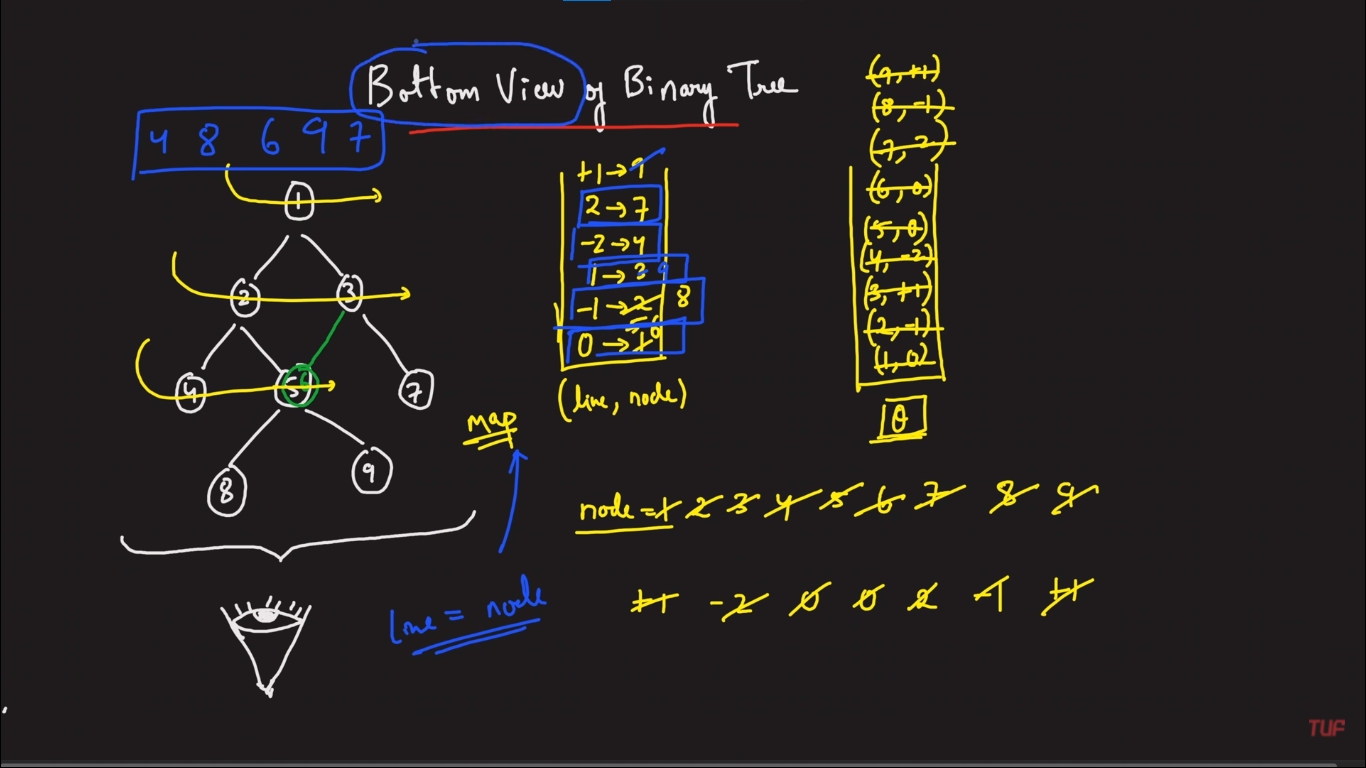 Bottom View of Binary Tree
4 8 6 9 7
1
2 3
4 5 6 7
8 9
+1→9
2→7
-2→4
1→3 9
-1→2 8
0→1 5 6
(line, node)
map
line = node
(9, +1)
(8, -1)
(7, 2)
(6, 0)
(5, 0)
(4, -2)
(3, +1)
(2, -1)
(1, 0)
Q
node = 1 2 3 4 5 6 7 8 9
+1 -2 0 0 2 -1 +1
TUF